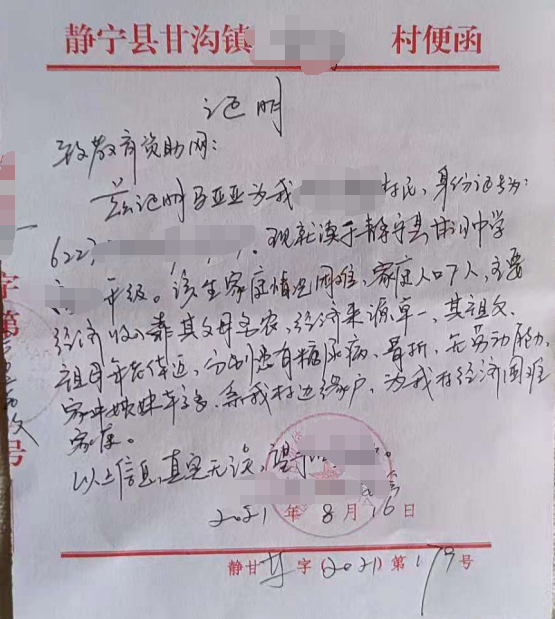 静宁县甘沟镇 村便函
证明
致教育资助网：
兹证明马亚亚为我 村民，身份证号为：
622 ，现就读于静宁县甘沟中学
年级。该生家庭情况困难，家庭人口7人，主要
经济收入靠其父母务农，经济来源单一，其祖父、
祖母年老体迈，分别患有糖尿病、骨折，无劳动能力，
家中姐妹 系我村边缘户，为我村经济困难
家庭。
以上信息，真实无误，望
2021年8月16日
静甘 字(2021)第179号